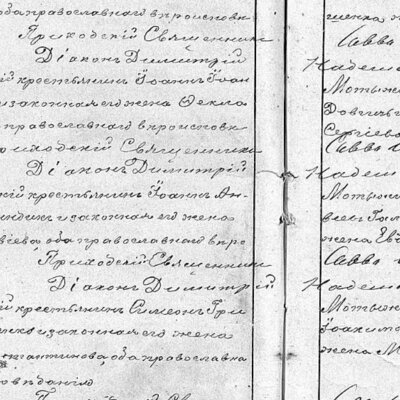 оба православнаго вѣроисповѣ
Приходскій Священник
Діаконъ Димитрій
й крестьянинъ Іоаннъ Іоан
и законная его жена Ѳекла
православнаго вѣроисповѣ
риходскій Священникъ
Діаконъ Димитрій
кій крестьянинъ Іоаннъ Ан
и законная его жена
оба православнаго вѣро
Приходскій Священник
Діаконъ Димитрій
й крестьянинъ Симеонъ Гри
и законная его жена
оба православна
Приходскій
Савва
Надеж
Мотыж
Сергіев
Савва
Надеж
Мотыж
жена Ев
Савва
Надеж
Мотыж
Іоаким
жена М
Савва